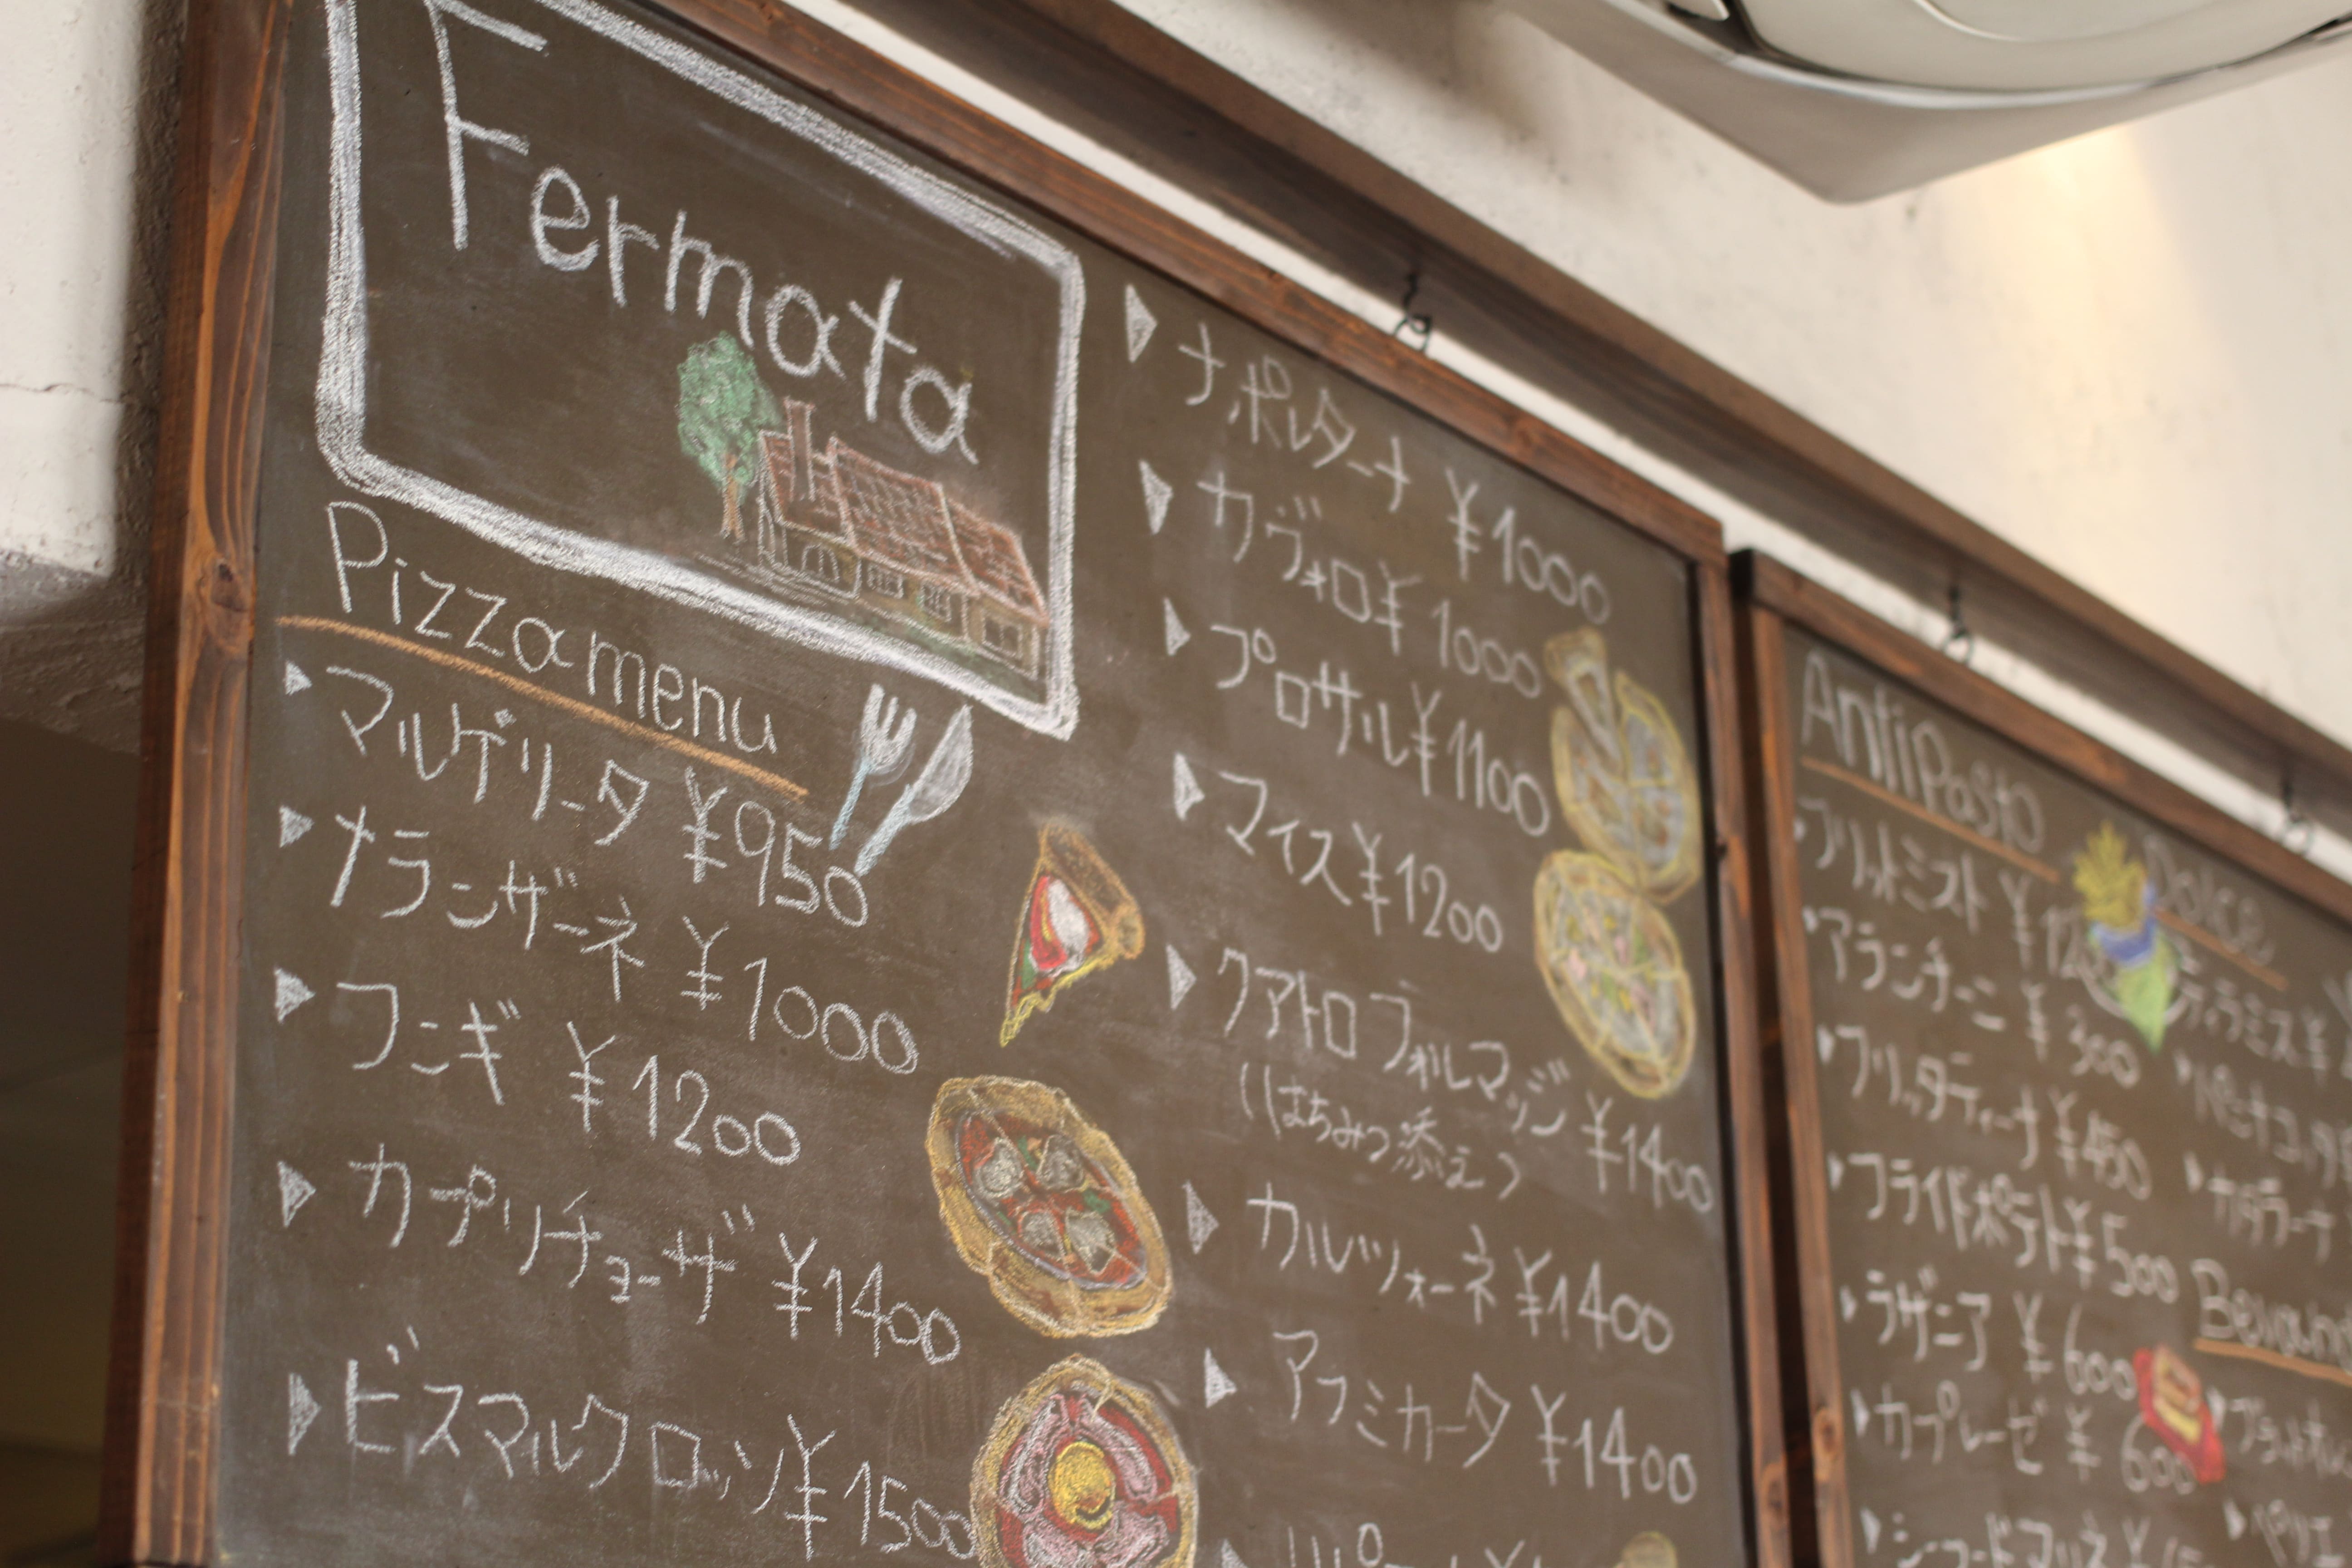 Fermata
Pizza menu
マルゲリータ ¥950
メランザーネ ¥1000
フンギ ¥1200
カプリチョーザ ¥1400
ビスマルクロッソ ¥1500
ナポレターナ ¥1000
カヴォロ ¥1000
プロサル ¥1100
マイス ¥1200
クアトロフォルマッジ ¥1400
(はちみつ添え)
カルツォーネ ¥1400
アフミカータ ¥1400
AntiPasto
フリットミスト
アランチーニ ¥300
フリッタティーナ ¥450
フライドポテト ¥500
ラザニア ¥600
カプレーゼ ¥600
Dolce
ティラミス ¥